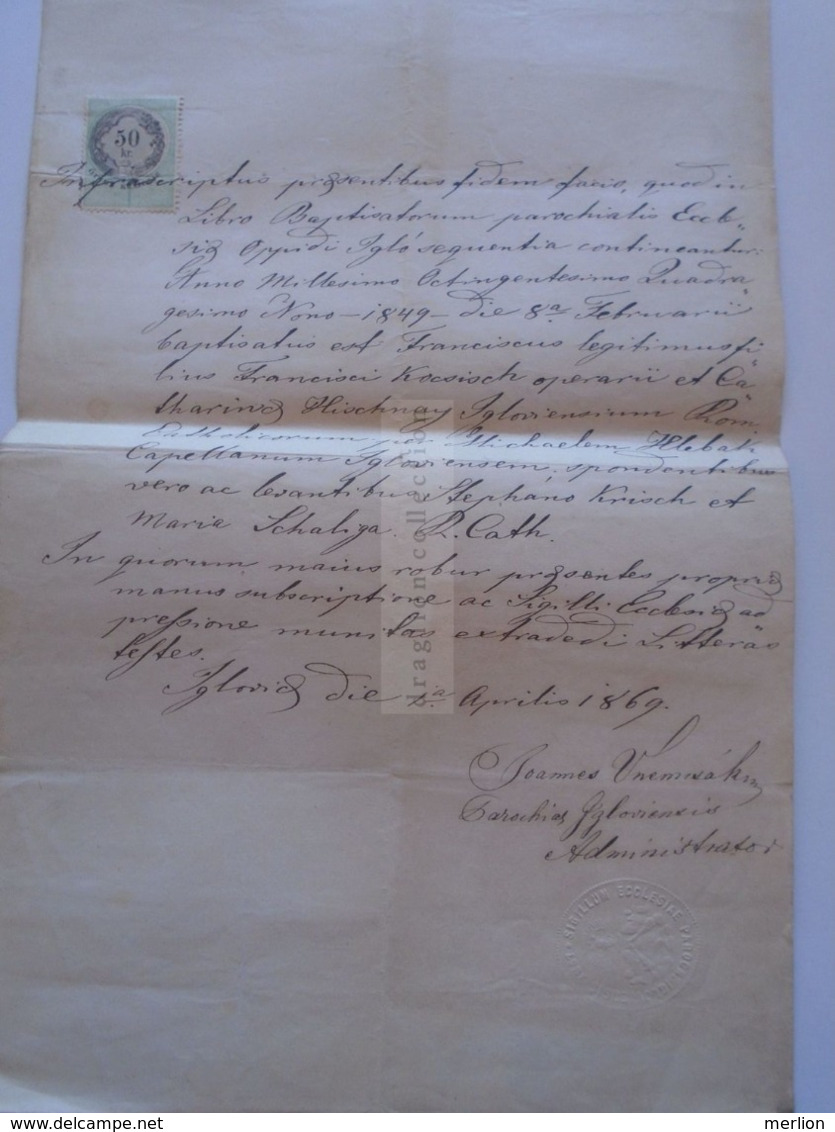 50
kr.
Infrascriptus præsentibus fidem facio, quod in
Libro Baptisatorum parochialis Eccle„
siæ Oppidi Igló sequentia contineantur:
Anno Millesimo Octingentesimo Quadra
gesimo Nono – 1849 – die 8ª Februarii
baptisatus est Franciscus legitimus fi„
lius Francisci Kocsisch operarii et Ca„
tharinæ Hischnay Igloviensium Rom.
Catholicorum per Michaelem Hlebah
Capellanum Igloviensem, spondentibus
vero ac levantibus Stephano Krisch et
Maria Schaliga. R. Cath.
In quorum maius robur præsentes propriæ
manus subscriptione ac Sigilli Ecclesiæ ad
pressione munitas extradedi Litteras
testes.
Igloviæ die Aprilis 1869.
Joannes
Parochiae Igloviensis
Administrator
SIGILLUM ECCLESIAE
dragiron collectible
merlion